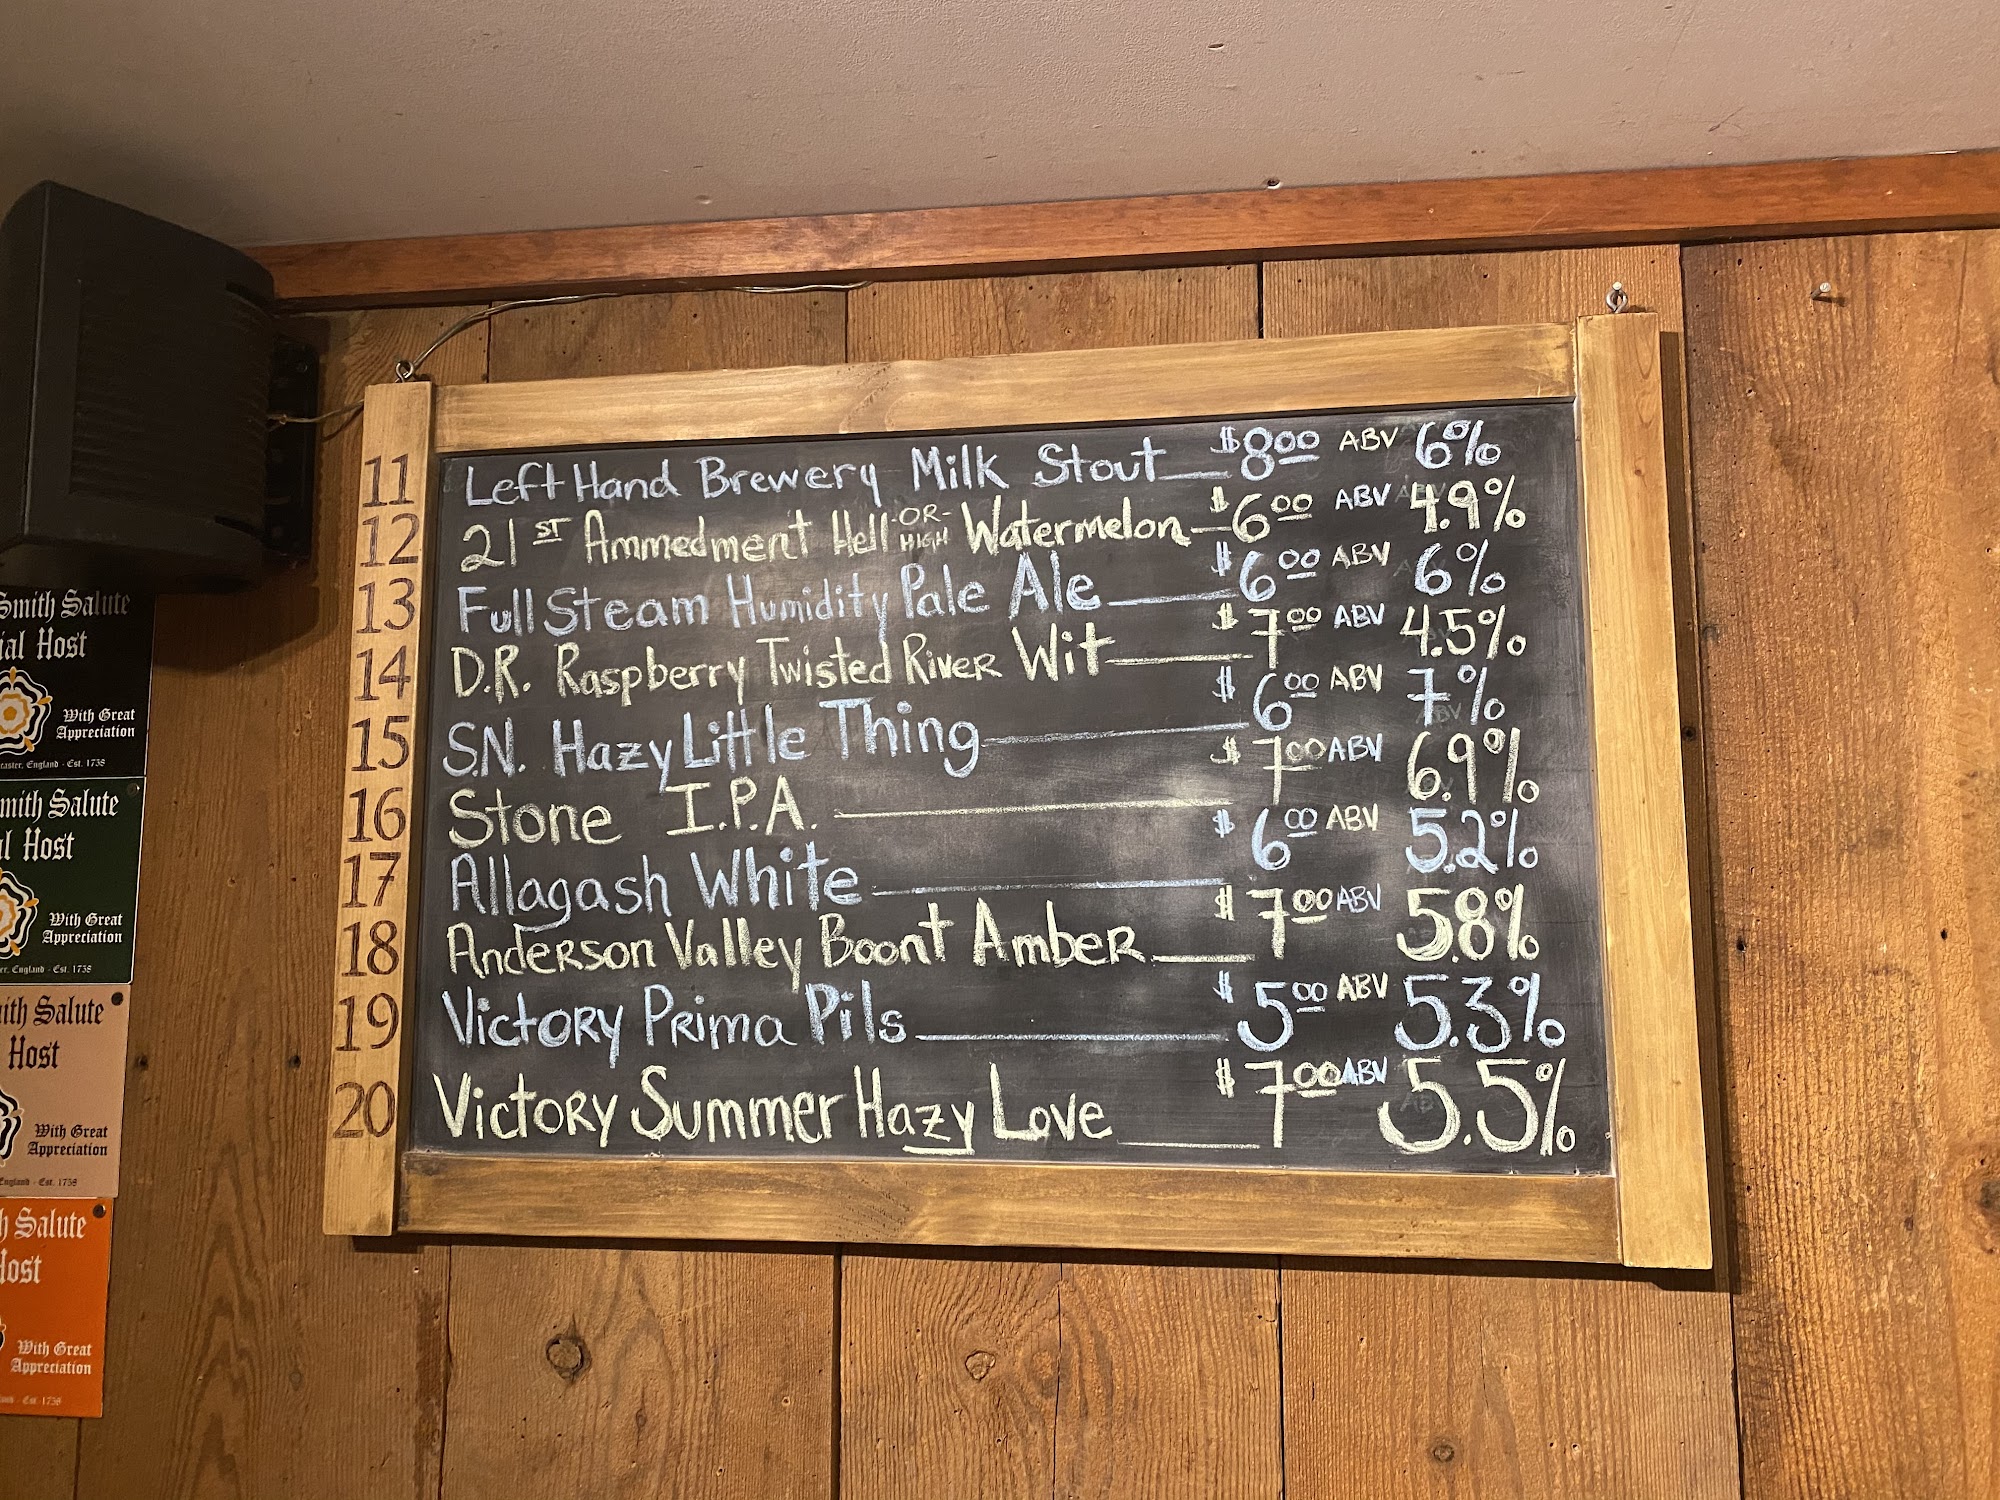 11 Left Hand Brewery Milk Stout $8.00 ABV 6%
12 21ST Ammedment Hell -OR- HIGH Watermelon $6.00 ABV 4.9%
13 Full Steam Humidity Pale Ale $6.00 ABV 6%
14 D.R. Raspberry Twisted River Wit $7.00 ABV 4.5%
15 S.N. Hazy Little Thing $6.00 ABV 7%
16 Stone I.P.A. $7.00 ABV 6.9%
17 Allagash White $6.00 ABV 5.2%
18 Anderson Valley Boont Amber $7.00 ABV 5.8%
19 Victory Prima Pils $5.00 ABV 5.3%
20 Victory Summer Hazy Love $7.00 ABV 5.5%
Smith Salute
ial Host
With Great
Appreciation
caster, England - Est. 1758
mith Salute
l Host
With Great
Appreciation
er, England - Est. 1758
ith Salute
Host
With Great
Appreciation
England - Est. 1758
h Salute
Host
With Great
Appreciation
Est. 1758